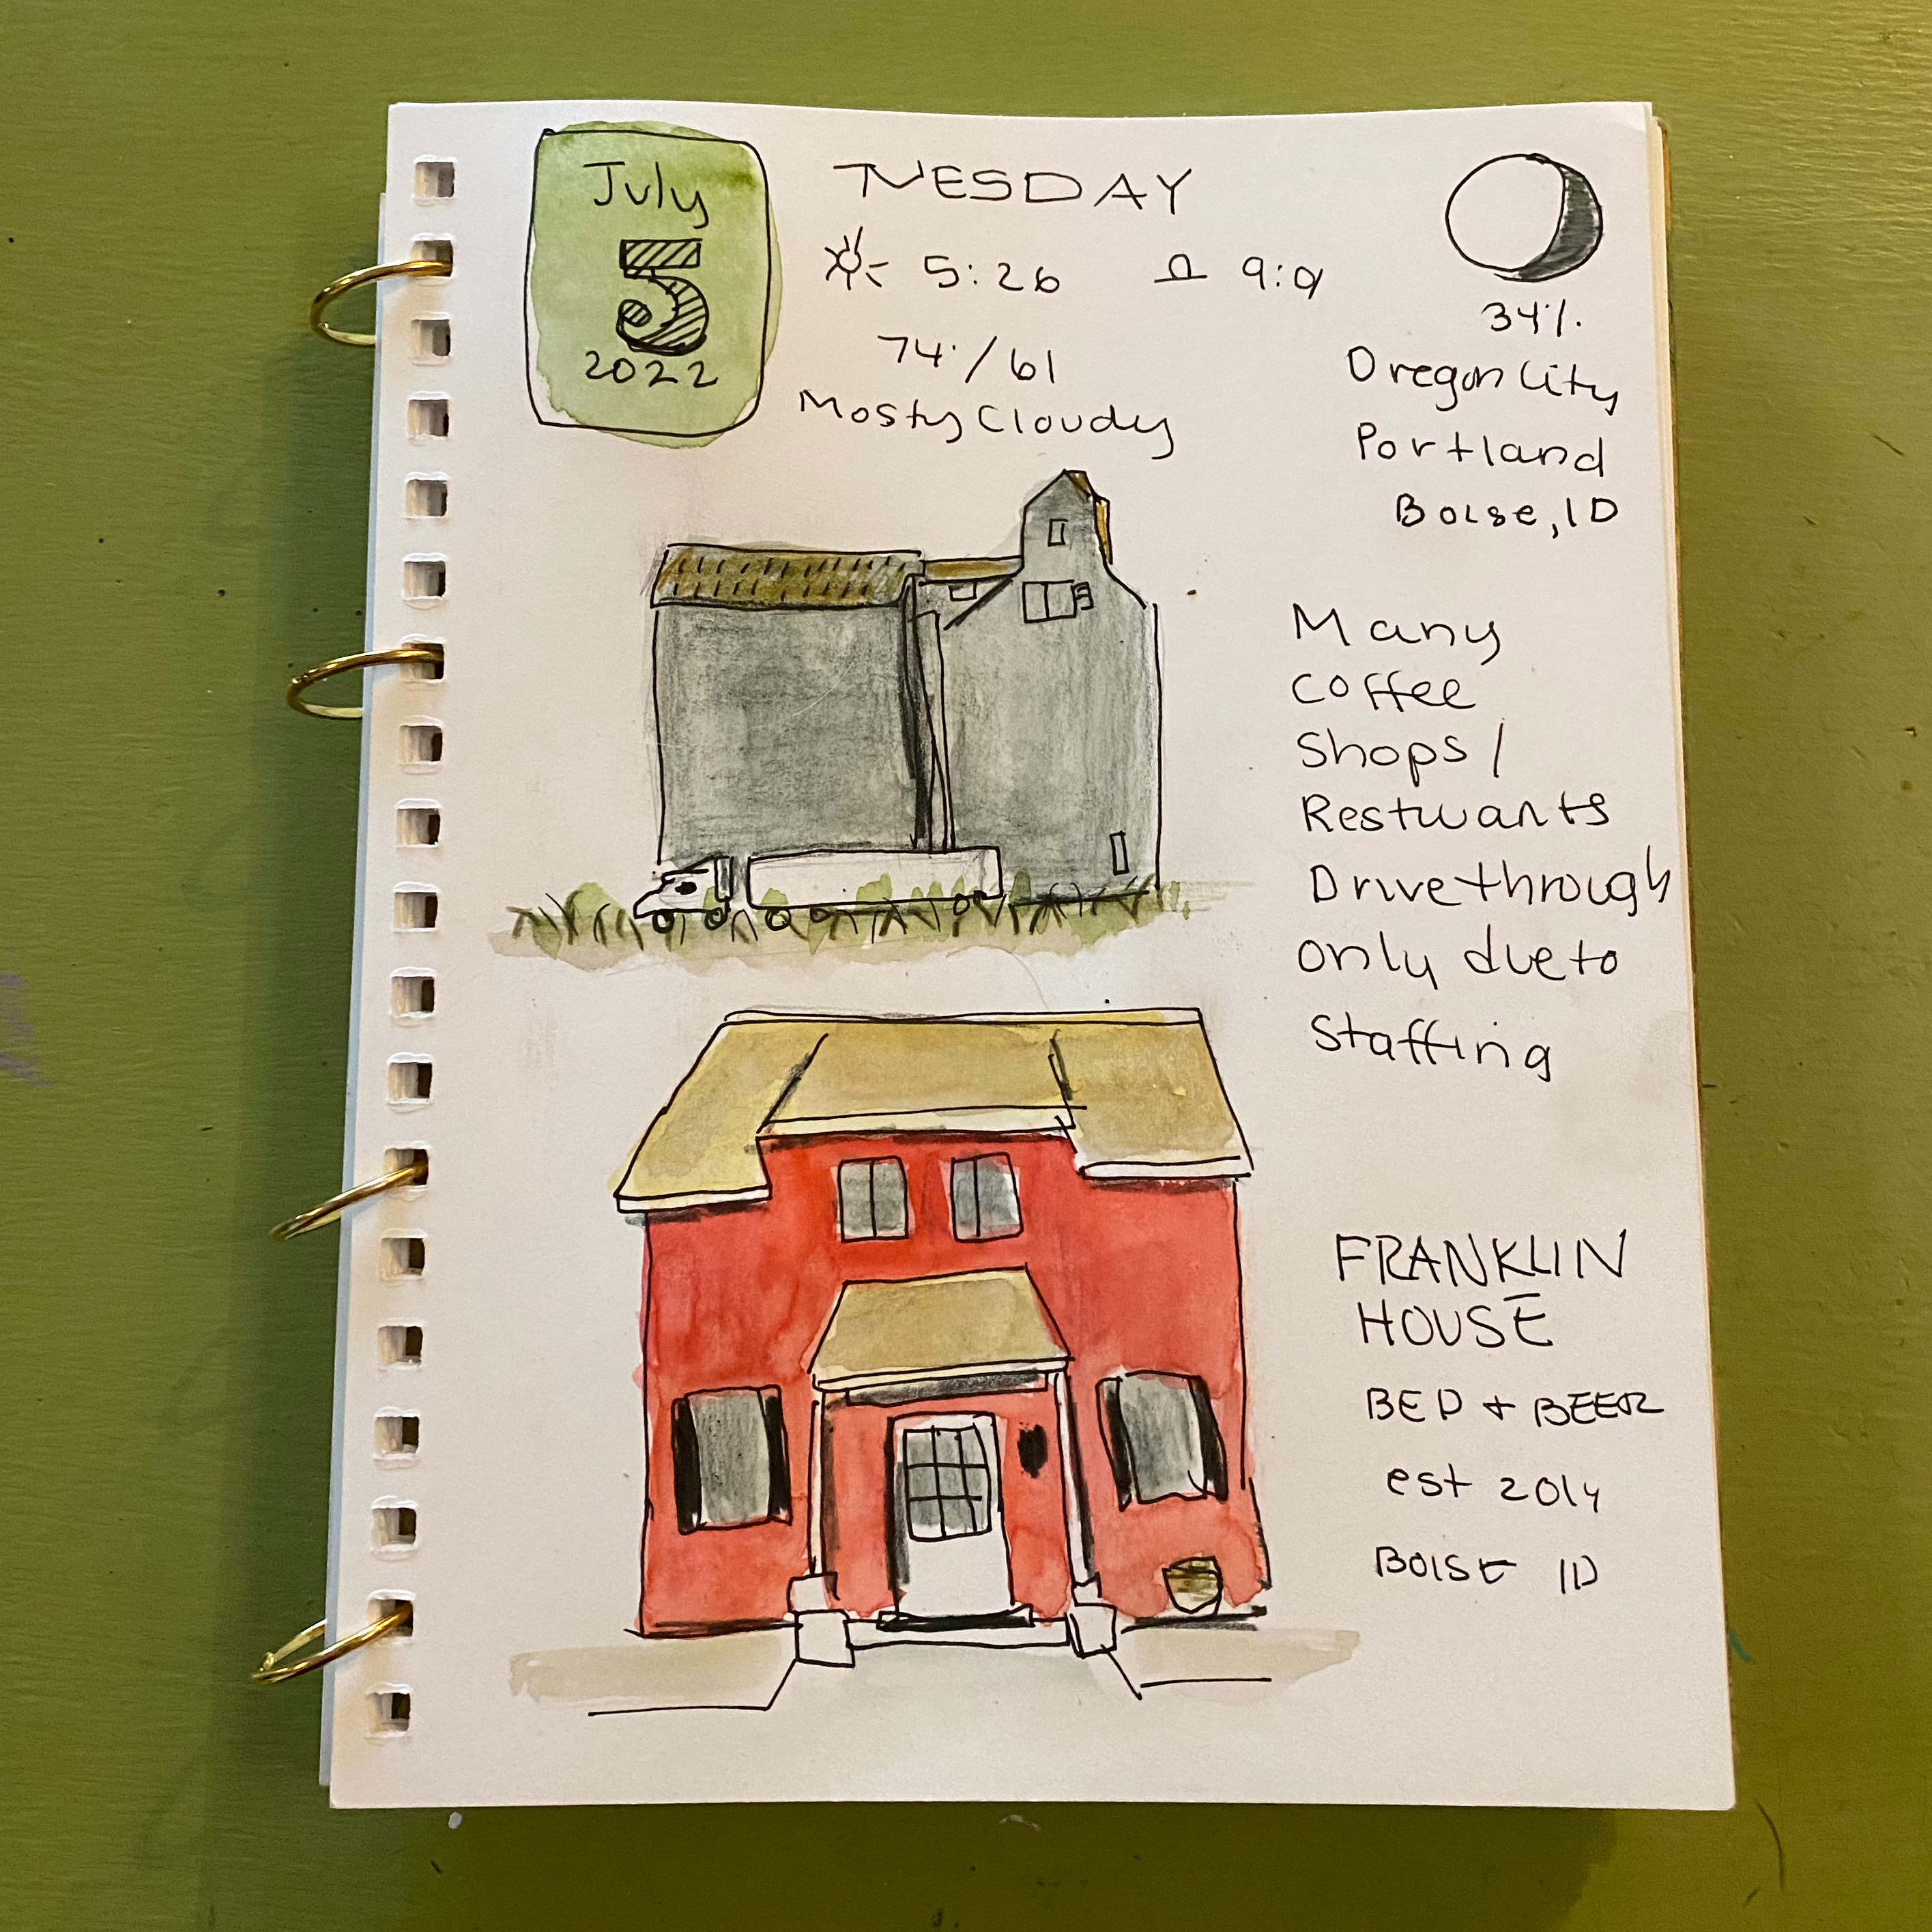 July
5
2022
TUESDAY
5:26 9:01
74°/61
Mosty Cloudy
34%
Oregon City
Portland
Boise, ID
Many
Coffee
Shops/
Restuants
Drive through
only due to
Staffing
FRANKLIN
HOUSE
BED + BEER
est 2014
BOISE ID